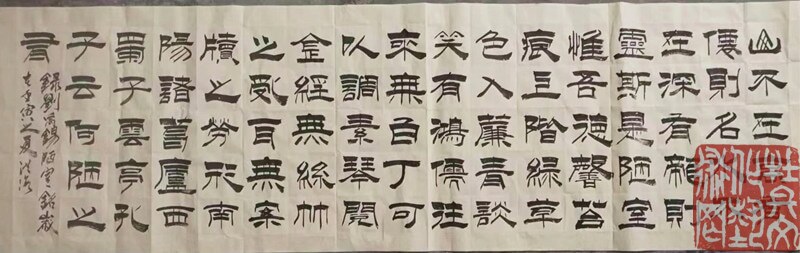 山不在
僊則名
在深有龍則
靈斯是陋室
惟吾德馨苔
痕上階綠草
色入簾青談
笑有鴻儒往
來無白丁可
以調素琴閱
金經無絲竹
之亂耳無案
牘之勞形南
陽諸葛廬西
蜀子雲亭孔
子云何陋之
有
錄劉禹錫陋室銘歲
在壬寅之夏